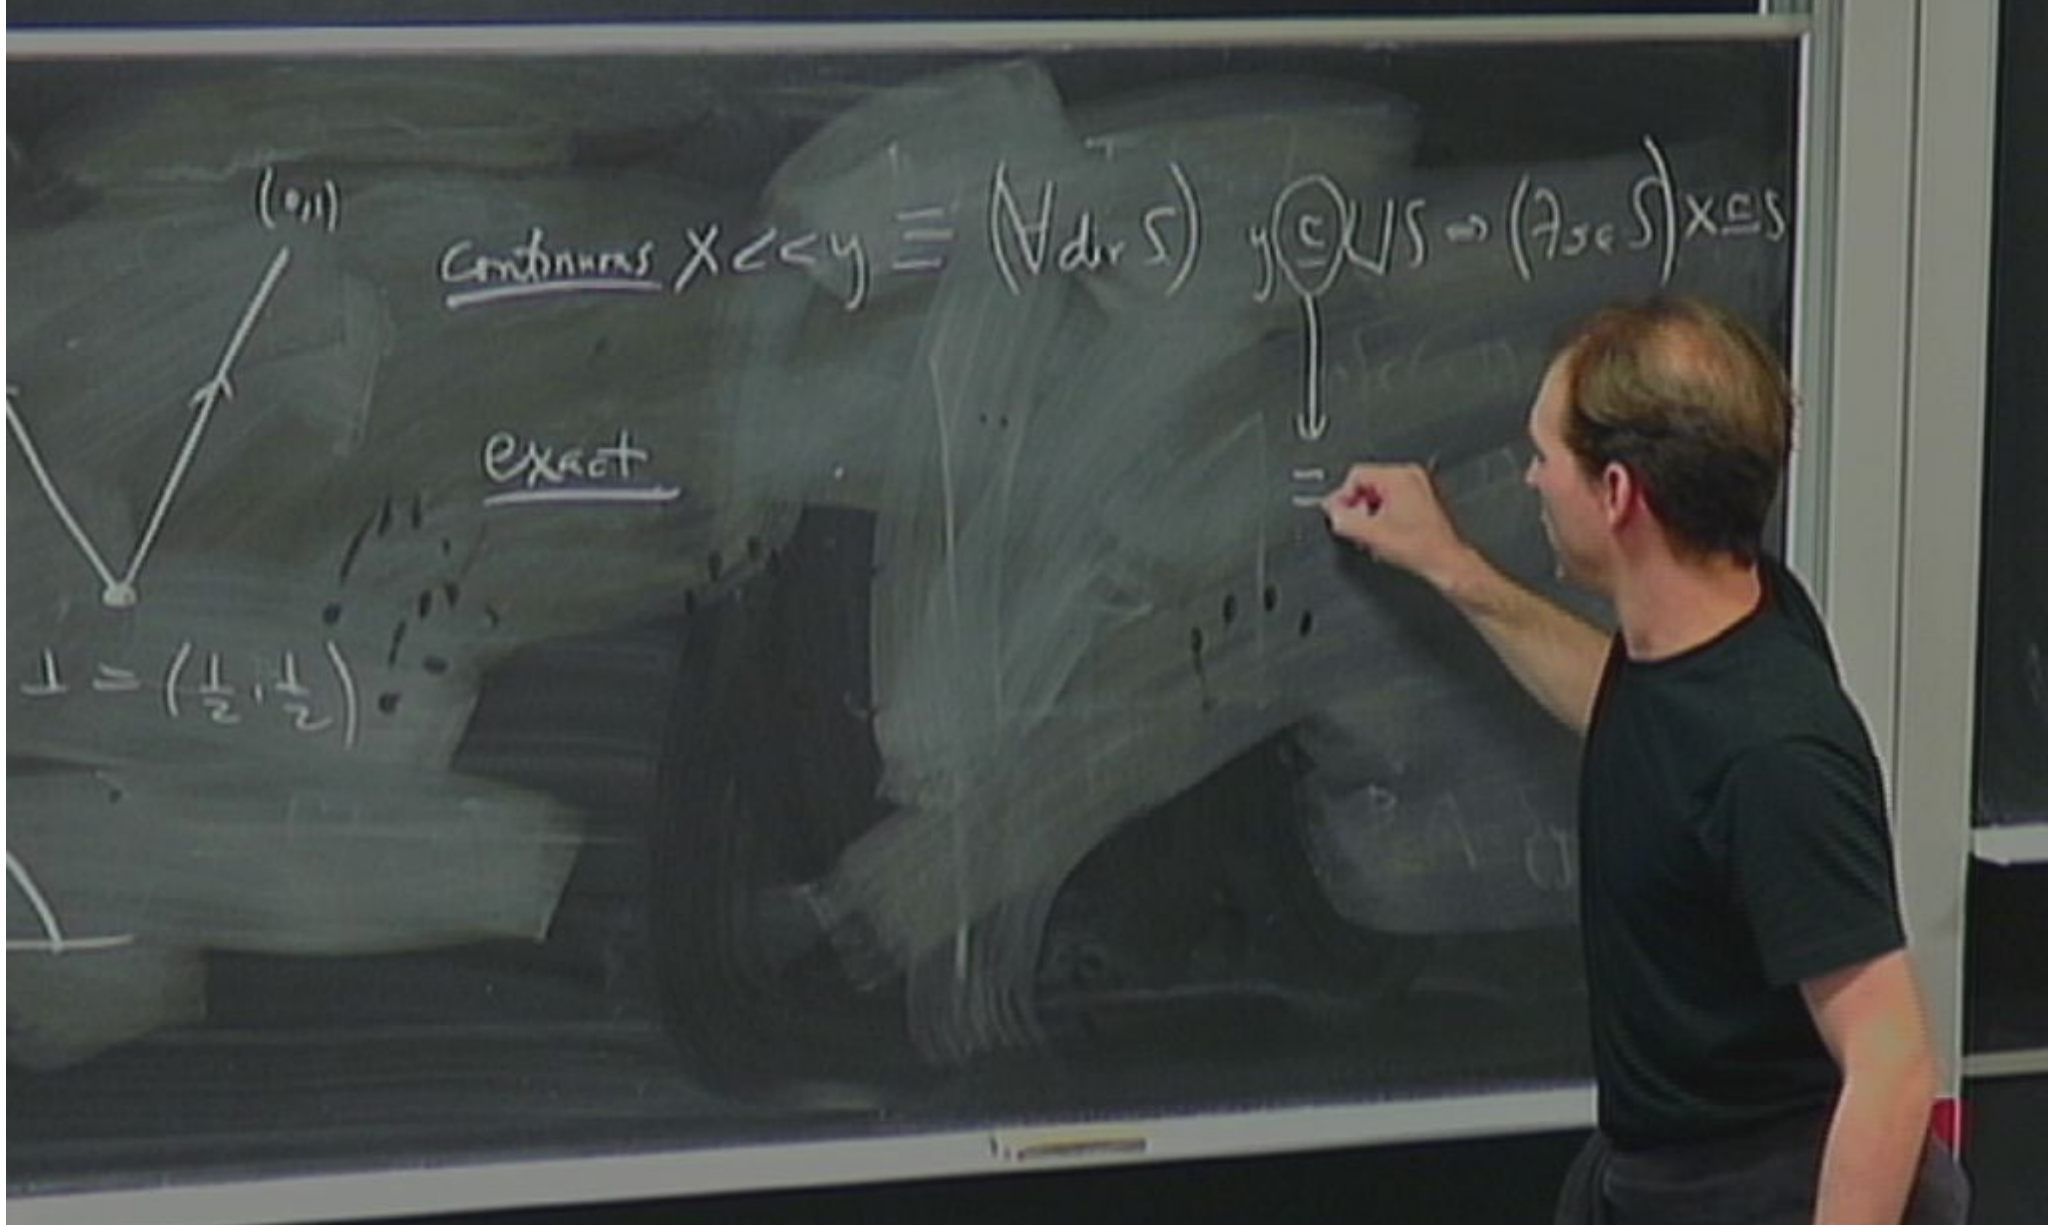 (0,1)
continuous x << y ≡ (∀ dir S) y ⊑ ⊔S ⇒ (∃s∈S) x ⊑ s
exact =
⊥ = (1/2, 1/2)